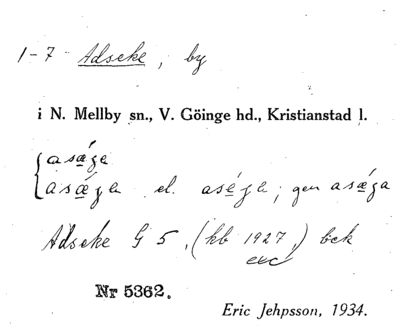 1-7 Adseke, by
i N. Mellby sn., V. Göinge hd., Kristianstad l.
asǽga
asǽga el. aséga; gen asǽga
Adseke G 5, (kb 1927,) bek
Nr 5362.
Eric Jehpsson, 1934.